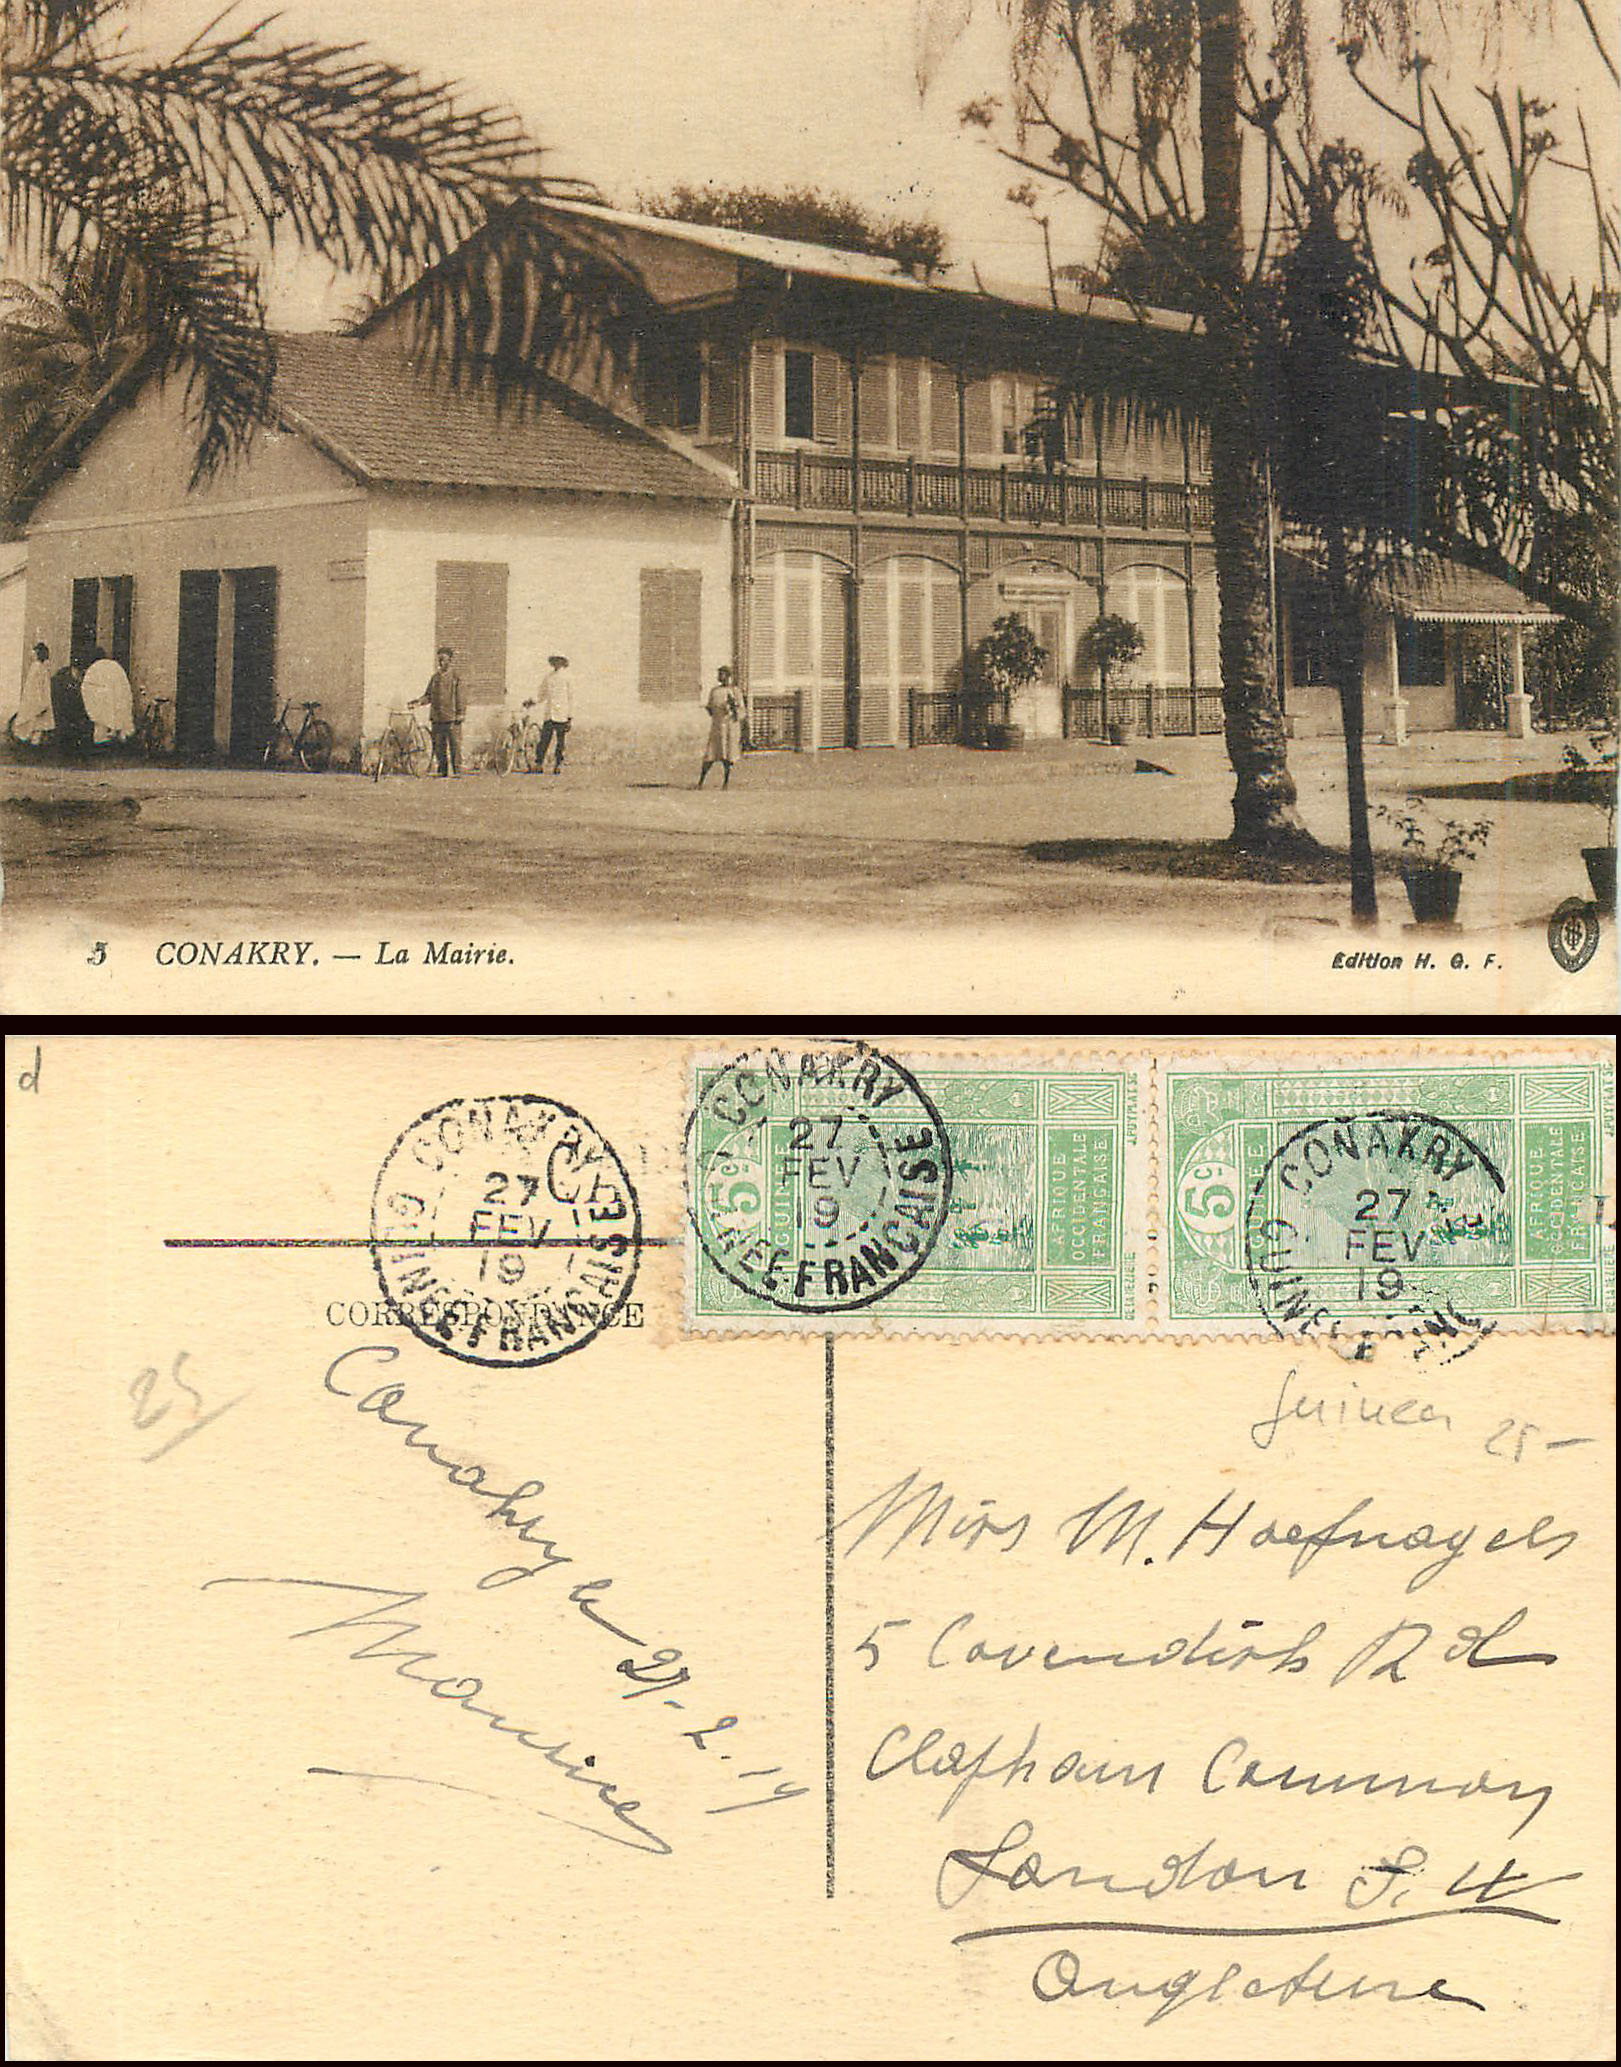 5 CONAKRY. — La Mairie.
Edition H. G. F.
d
CONAKRY
27
FEV
19
GUINEE FRANCAISE
CA
CONAKRY
27
FEV
19
NEE FRANCAISE
5c
GUINEE
AFRIQUE
OCCIDENTALE
FRANCAISE
J.PUYPLAT SC
CONAKRY
27
FEV
19
GUINEE
5c
GUINEE
AFRIQUE
OCCIDENTALE
FRANCAISE
CORRESPONDANCE
25
Conakry le 27-2-19
Maurice
Guinea 25-
Miss M. Hoefnagels
5 Cavendish Rd
Clapham Common
London S. W
Angleterre